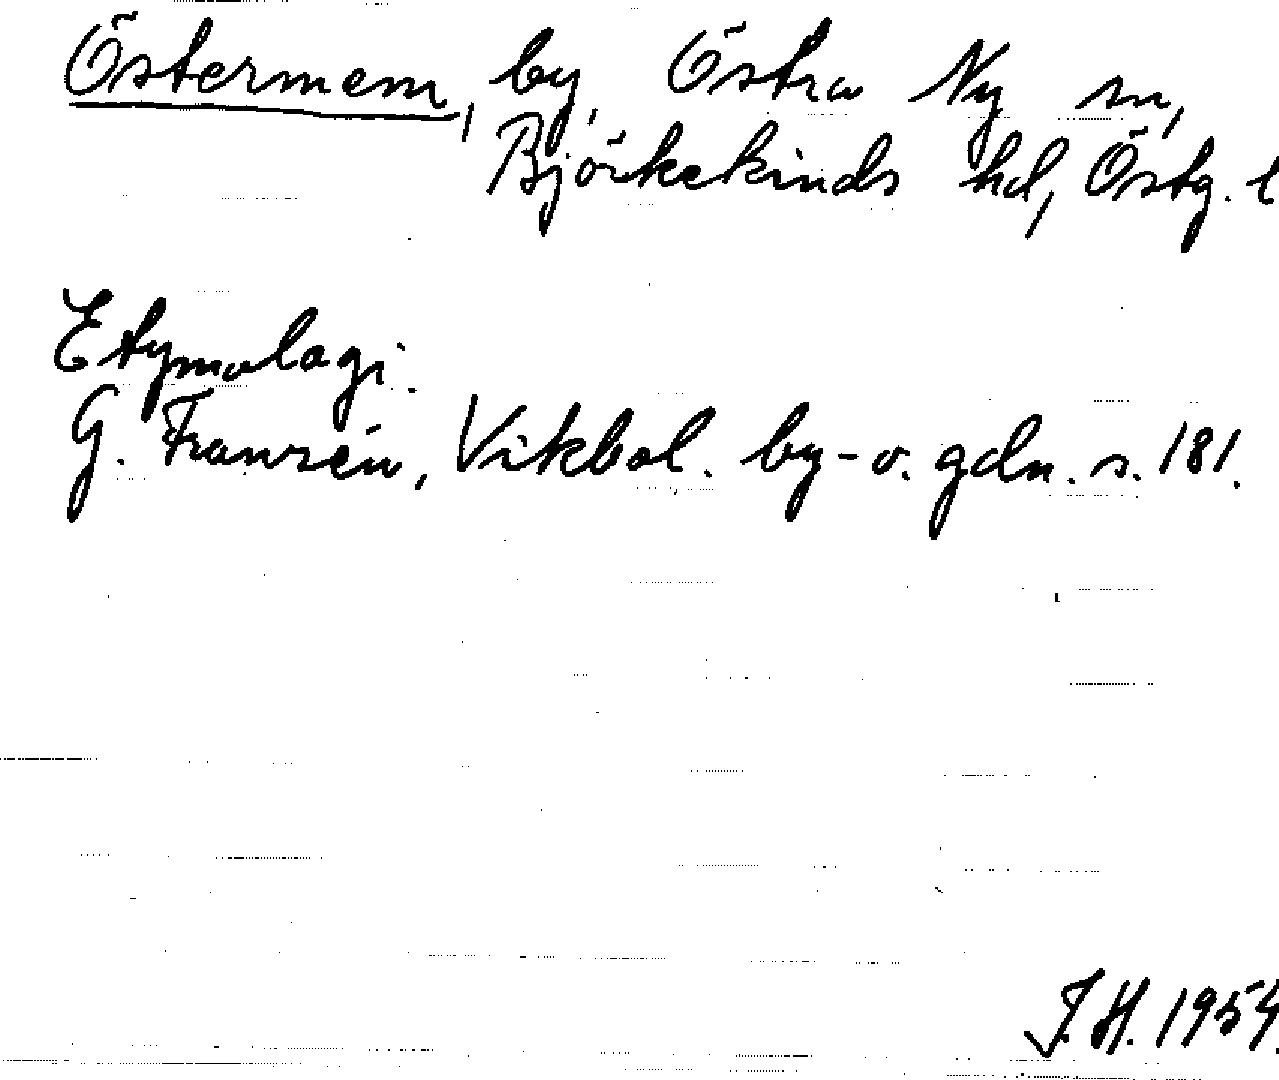 Östermem, by, Östra Ny sn,
Björkekinds hd, Östg. l
Etymologi.
G. Franzén, Vikbol. by- o. gdn. s. 181.
J.H. 1954.